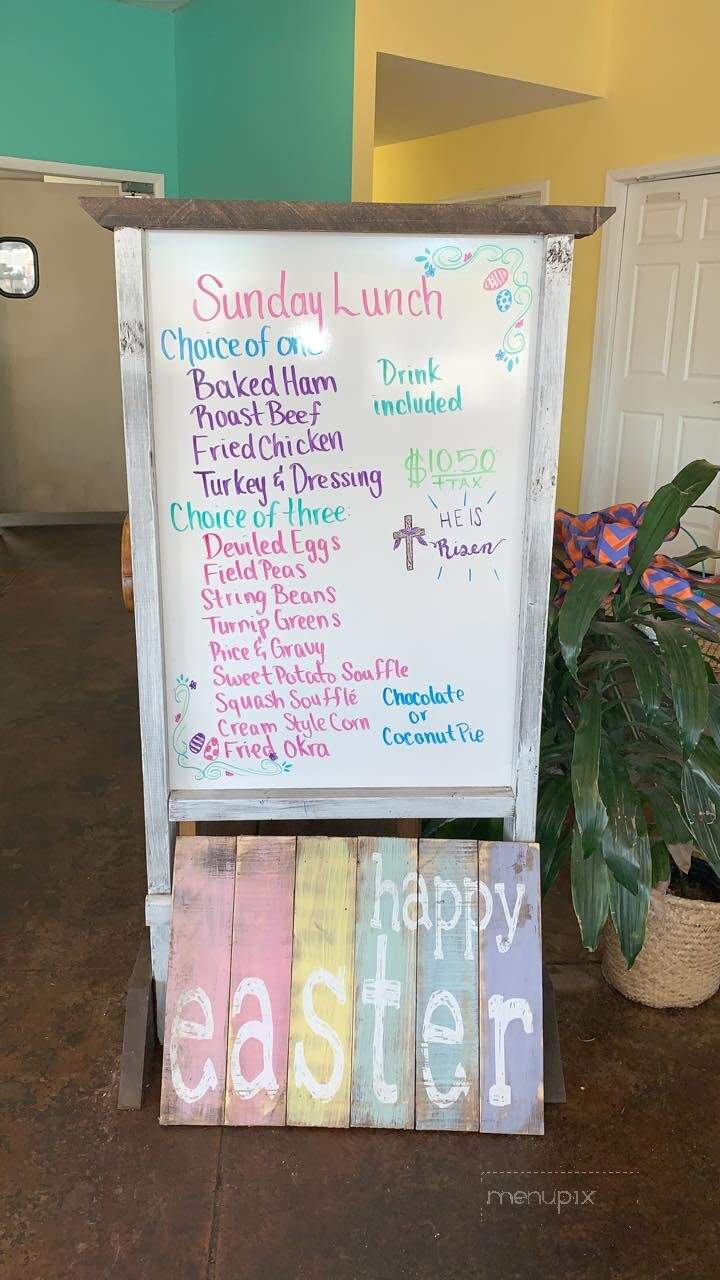 Sunday Lunch
Choice of one
Baked Ham
Roast Beef
Fried Chicken
Turkey & Dressing
Drink
included
$10.50
+TAX
HE IS
Risen
Choice of three:
Deviled Eggs
Field Peas
String Beans
Turnip Greens
Rice & Gravy
Sweet Potato Souffle
Squash Soufflé
Cream Style Corn
Fried Okra
Chocolate
or
Coconut Pie
happy
easter
menupix